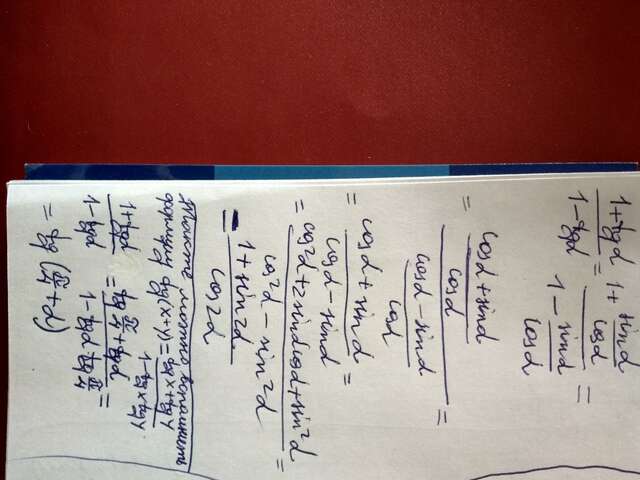 (1+tgα)/(1-tgα) = (1 + sinα/cosα)/(1 - sinα/cosα) =
= ((cosα+sinα)/cosα)/((cosα-sinα)/cosα) =
= (cosα+sinα)/(cosα-sinα) =
= (cos²α+2sinαcosα+sin²α)/(cos²α-sin²α) =
= (1+sin2α)/cos2α
Также можно вспомнить
формулу tg(x+y) = (tgx+tgy)/(1-tgx tgy)
(1+tgα)/(1-tgα) = (tg π/4 + tgα)/(1-tgα tg π/4) =
= tg(π/4+α)